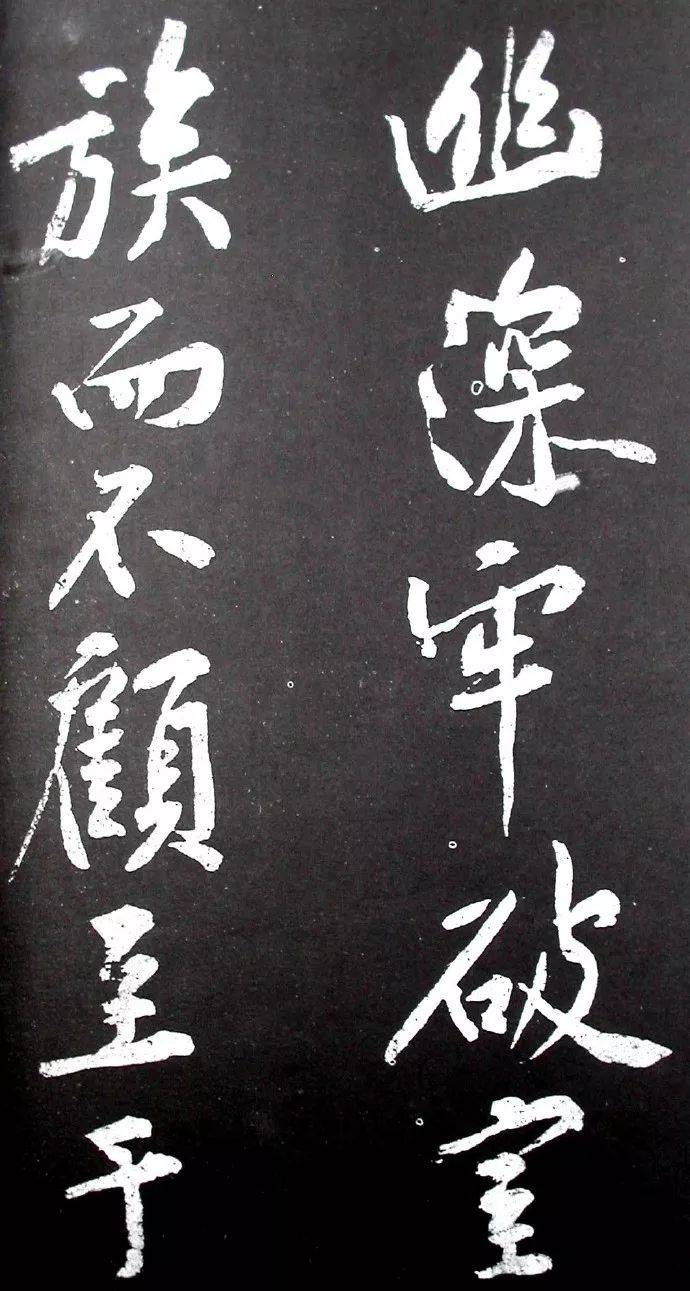 幽深牢破室
族而不顧至于